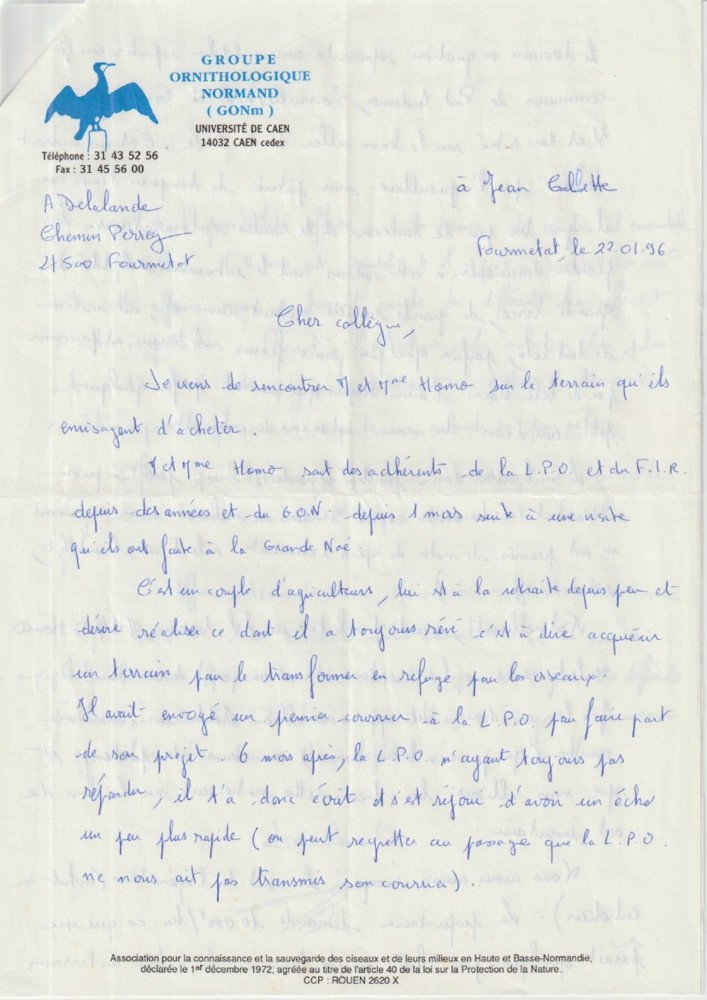 GROUPE
ORNITHOLOGIQUE
NORMAND
( GONm )
UNIVERSITÉ DE CAEN
14032 CAEN cedex
Téléphone : 31 43 52 56
Fax : 31 45 56 00
à Jean Collette
A Delalande
Chemin Perrey
27500 Fourmetot
Fourmetot, le 22.01.96
Cher collègue,
Je viens de rencontrer M et Mme Homo sur le terrain qu'ils
envisagent d'acheter.
M et Mme Homo sont des adhérents de la L.P.O. et du F.I.R.
depuis des années et du G.O.N. depuis 1 mois suite à une visite
qu'ils ont faite à la Grande Noé.
C'est un couple d'agriculteurs, lui est à la retraite depuis peu et
désire réaliser ce dont il a toujours rêvé c'est à dire acquérir
un terrain pour le transformer en refuge pour les oiseaux.
Il avait envoyé un premier courrier à la L.P.O. pour faire part
de son projet. 6 mois après, la L.P.O. n'ayant toujours pas
répondu, il t'a donc écrit et s'est réjoui d'avoir un écho
un peu plus rapide (on peut regretter au passage que la L.P.O.
ne nous ait pas transmis son courrier).
Association pour la connaissance et la sauvegarde des oiseaux et de leurs milieux en Haute et Basse-Normandie,
déclarée le 1er décembre 1972, agréée au titre de l'article 40 de la loi sur la Protection de la Nature.
CCP : ROUEN 2620 X